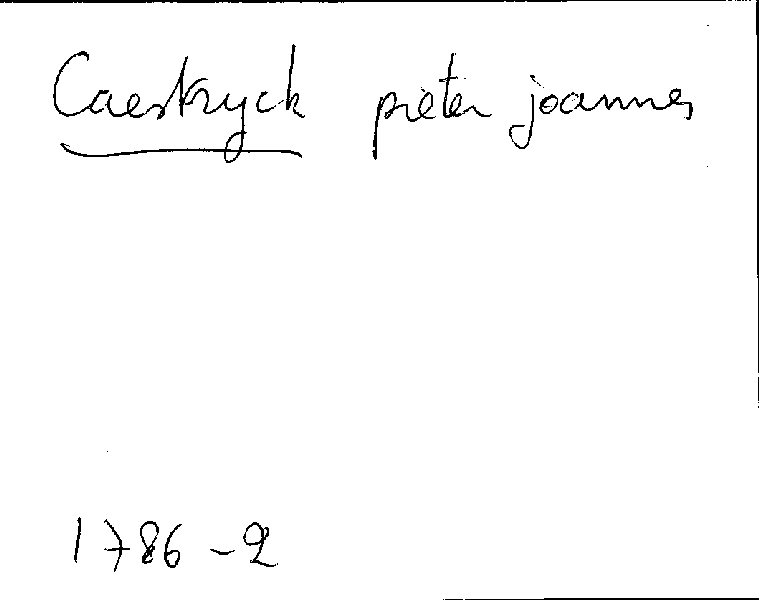 Caestryck pieter joannes
1786-2